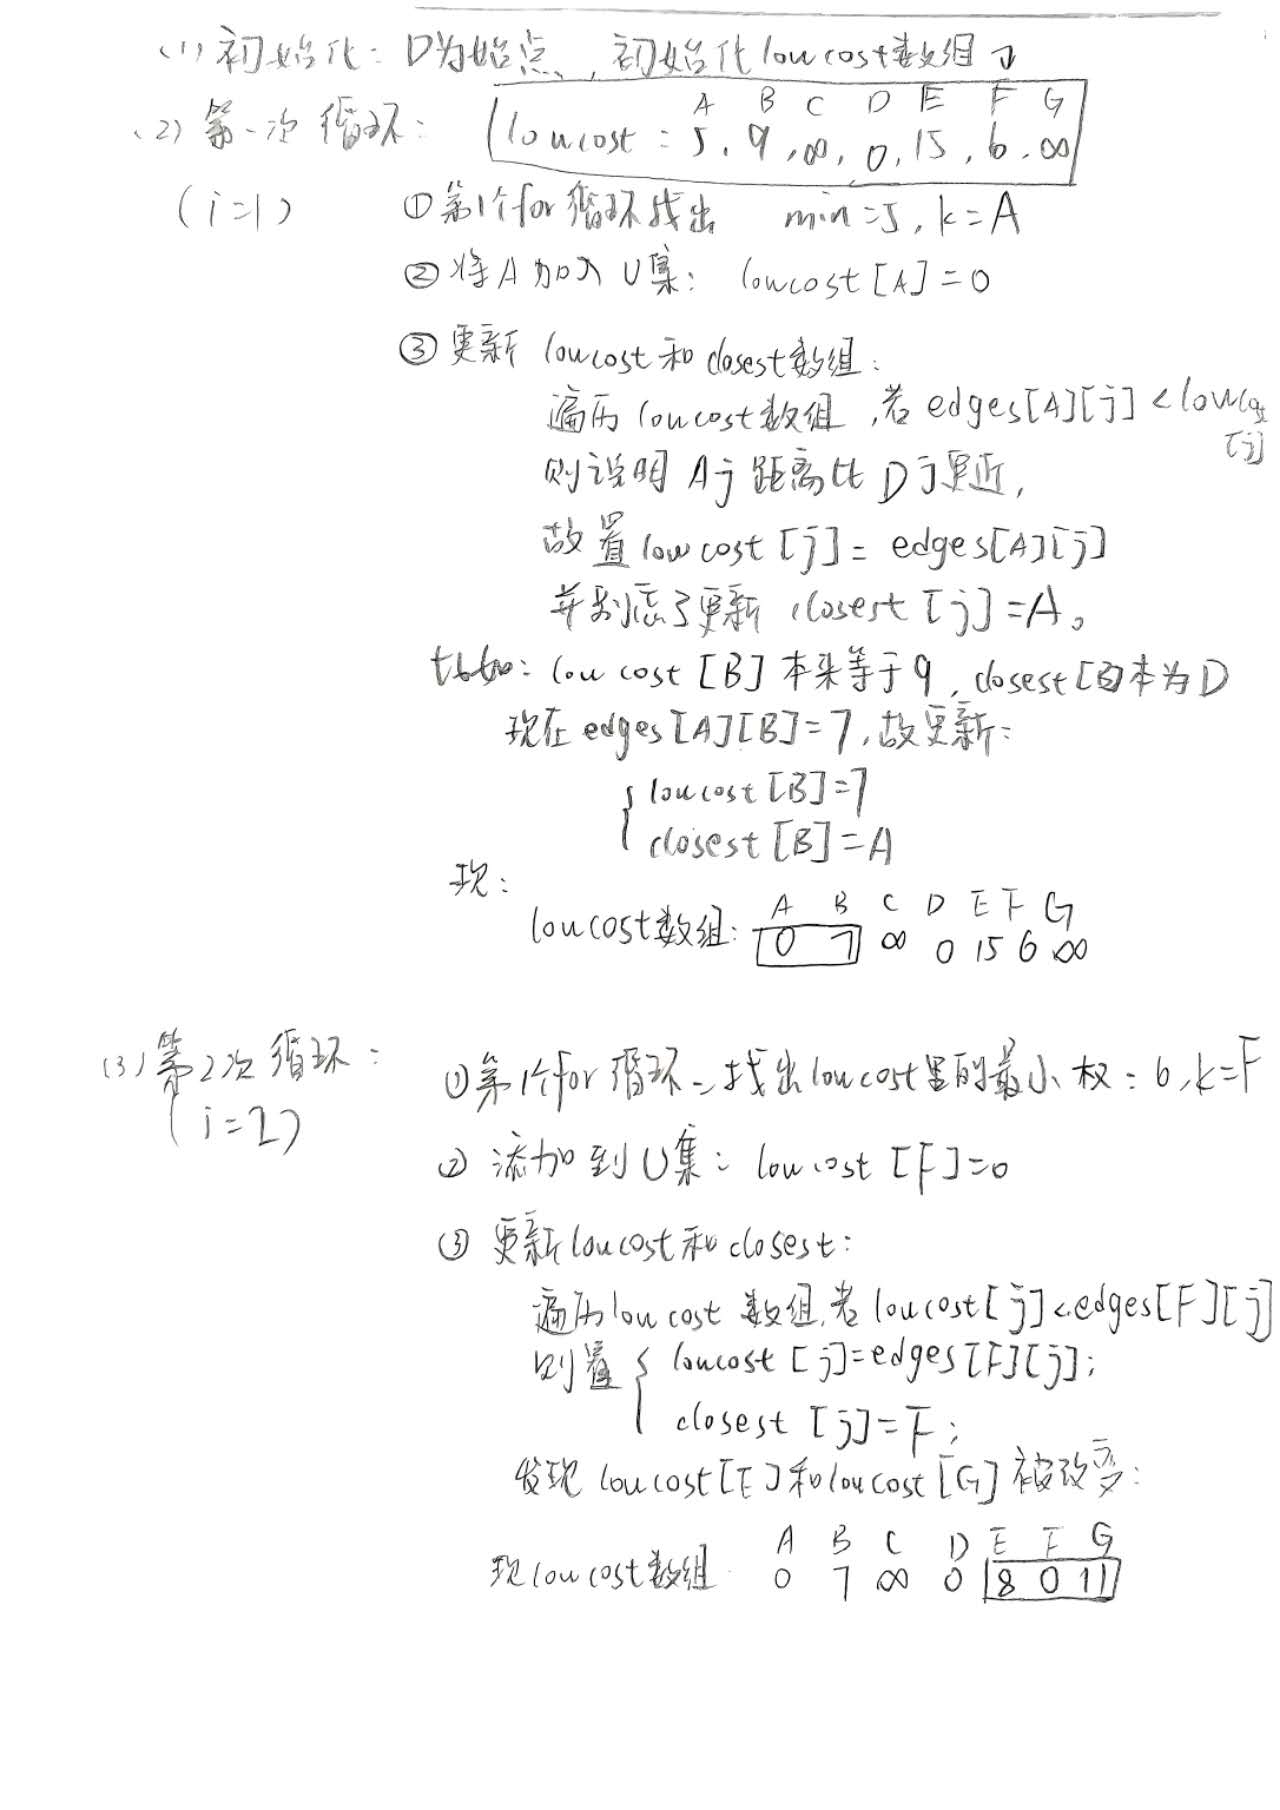 (1) 初始化: D为始点, 初始化lowcost数组
(2) 第一次循环:
A B C D E F G
lowcost: 5, 9, ∞, 0, 15, 6, ∞
(i=1)
①第1个for循环找出 min=5, k=A
②将A加入U集: lowcost[A]=0
③更新 lowcost和closest数组:
遍历lowcost数组, 若edges[A][j]<lowcost
[j]
则说明 Aj距离比Dj更近,
故置lowcost[j]= edges[A][j]
并别忘了更新 closest[j]=A。
比如: lowcost[B]本来等于9, closest[B]本为D
现在edges[A][B]=7, 故更新:
{ lowcost[B]=7
closest[B]=A
现:
A B C D E F G
lowcost数组: 0 7 ∞ 0 15 6 ∞
(3) 第2次循环:
(i=2)
①第1个for循环 找出lowcost里的最小权: 6, k=F
② 添加到U集: lowcost[F]=0
③ 更新lowcost和closest:
遍历lowcost数组, 若lowcost[j]<edges[F][j]
则置 { lowcost[j]=edges[F][j];
closest[j]=F;
发现 lowcost[E]和lowcost[G]被改变:
A B C D E F G
现lowcost数组 0 7 ∞ 0 8 0 11